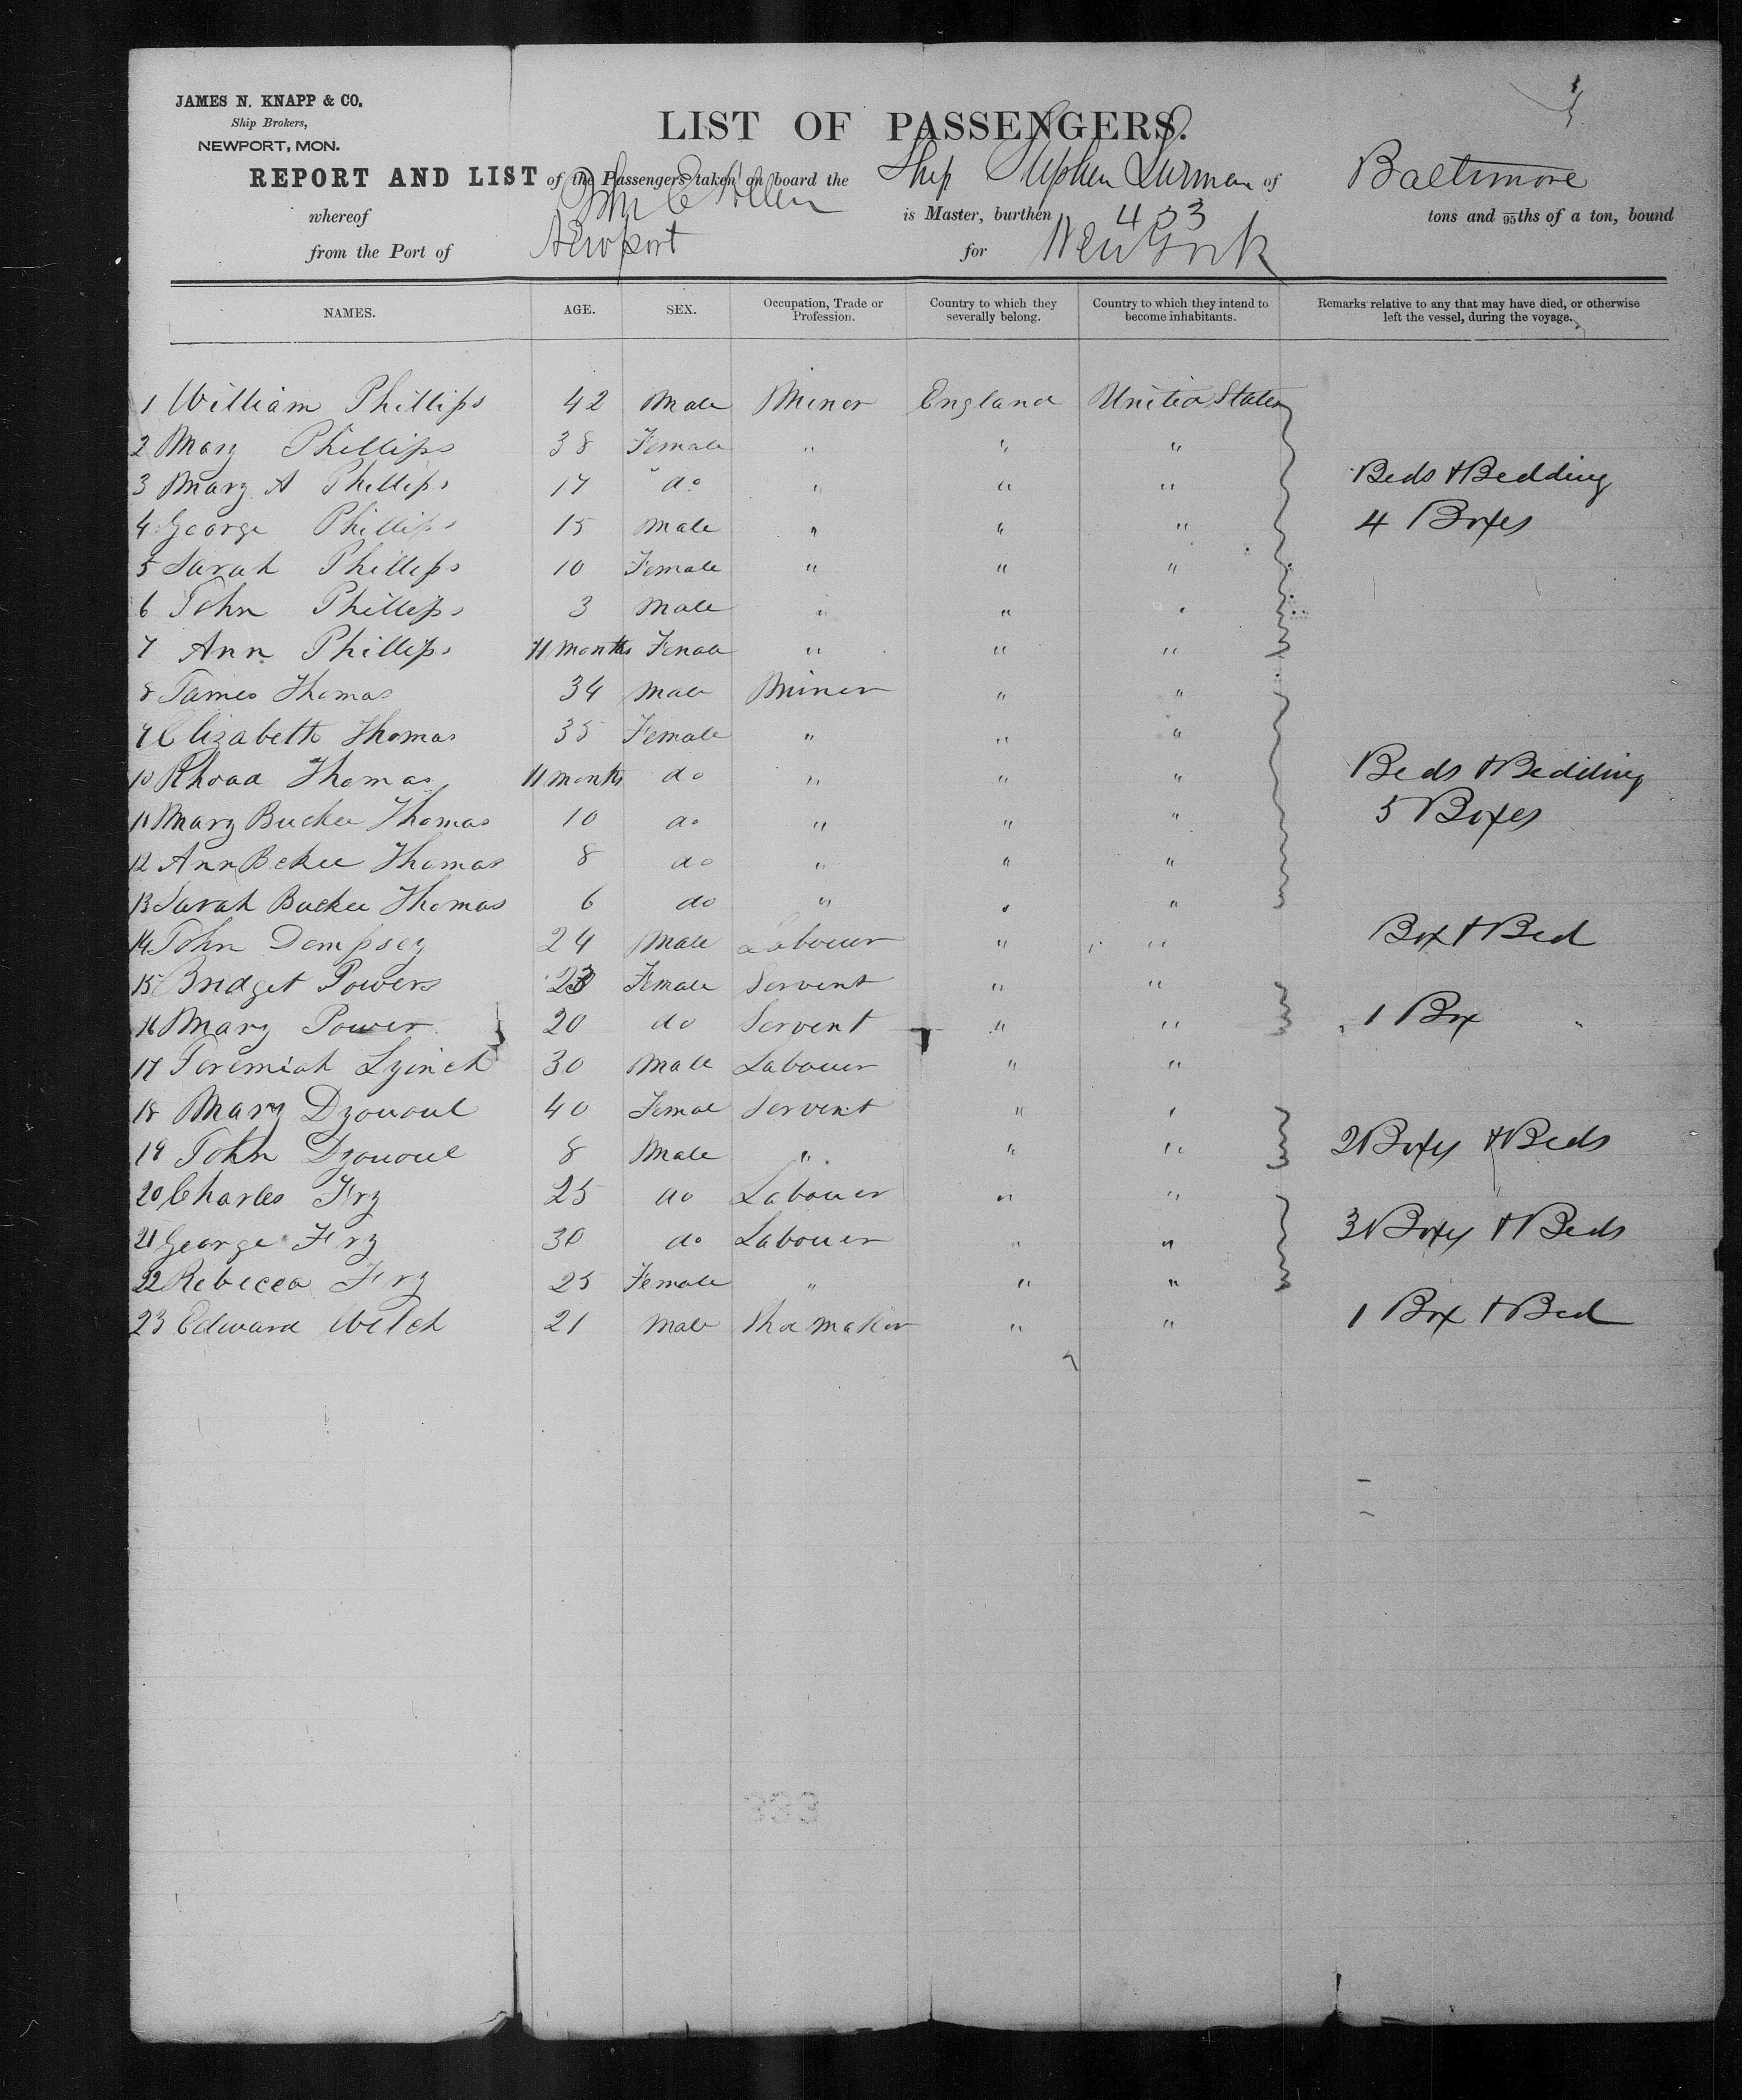 JAMES N. KNAPP & CO.
Ship Brokers,
NEWPORT, MON.
LIST OF PASSENGERS.
REPORT AND LIST of the Passengers taken on board the Ship Stephen Lurman of Baltimore
whereof John C is Master, burthen 433 tons and 95ths of a ton, bound
from the Port of Newport for New York
NAMES. AGE. SEX. Occupation, Trade or Profession. Country to which they severally belong. Country to which they intend to become inhabitants. Remarks relative to any that may have died, or otherwise left the vessel, during the voyage.
1 William Phillips 42 Male Miner England United States
2 Mary Phillips 38 Female " " "
3 Mary A Phillips 17 do " " " Beds & Bedding
4 George Phillips 15 Male " " " 4 Boxes
5 Sarah Phillips 10 Female " " "
6 John Phillips 3 Male " " "
7 Ann Phillips 11 months Female " " "
8 James Thomas 34 Male Miner " "
9 Elizabeth Thomas 35 Female " " "
10 Rhoad Thomas 11 months do " " " Beds & Bedding
11 Mary Buckee Thomas 10 do " " " 5 Boxes
12 Ann Bekee Thomas 8 do " " "
13 Sarah Buckee Thomas 6 do " " "
14 John Dempsey 24 Male Labouer " " Box & Bed
15 Bridget Powers 23 Female Servent " "
16 Mary Power 20 do Servent " " 1 Box
17 Jeremiah Lyinch 30 Male Labouer " "
18 Mary Dyououl 40 Femae Servent " "
19 John Dyououl 8 Male " " " 2 Boxes & Beds
20 Charles Fry 25 do Labouer " "
21 George Fry 30 do Labouer " " 3 Boxes & Beds
22 Rebecca Fry 25 Female " " "
23 Edward Welch 21 Male Shoemaker " " 1 Box & Bed